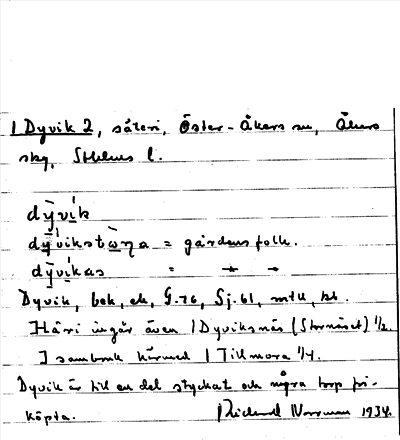 1 Dyvik 2, säteri, Öster-Åkers sn, Åkers
skg, Sthlms l.
dȳvik
dȳvikstōŋa = gårdens folk.
dȳvikas = " "
Dyvik, bok, ek, G.76, Sj.61, mtlk, kt.
Häri ingår även 1 Dyviksnäs (Stornäset) 1/2.
I sambruk härmed 1 Tillmora 1/4.
Dyvik är till en del styckat och några torp fri-
köpta. Richard Norrman 1934.